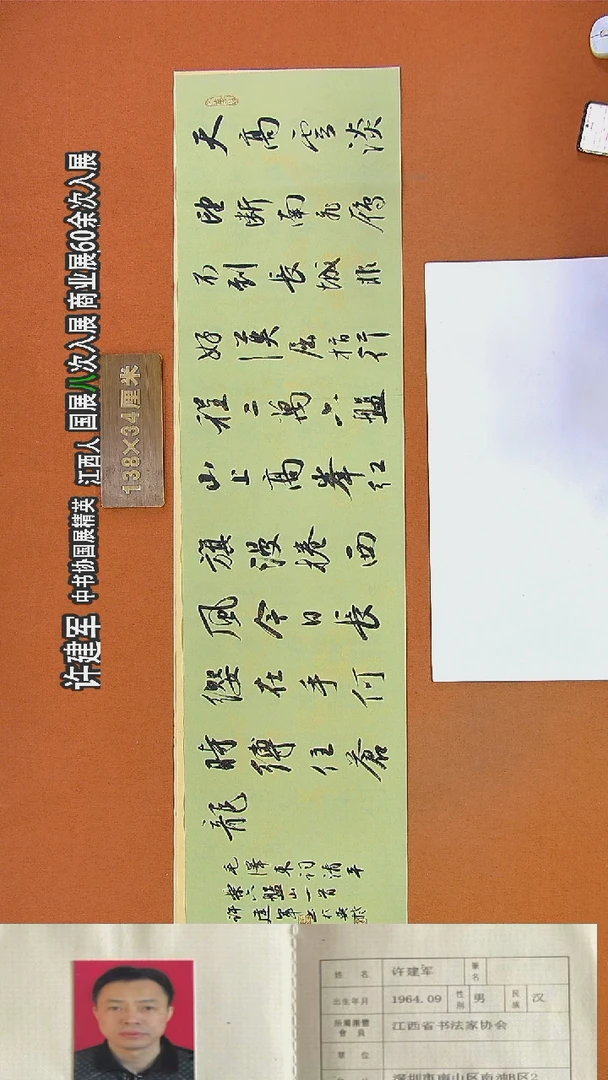 许建军 中书协国展精英 江西人 国展八次入展 商业展60余次入展
138×34厘米
天高雲淡
望斷南飛雁
不到長城非
好漢屈指行
程二萬六盤
山上高峯紅
旗漫捲西
風今日長
纓在手何
時縛住蒼
龍
毛澤東詞清平
樂六盤山一首
許建軍
姓名 许建军 笔名
出生年月 1964.09 性别 男 民族 汉
所属团体会员 江西省书法家协会
单位
深圳市南山区南油B区2